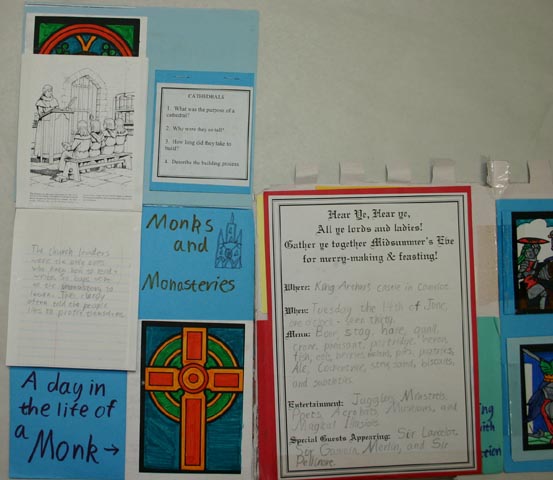 CATHEDRALS
1. What was the purpose of a
cathedral?
2. Why were they so tall?
3. How long did they take to
build?
4. Describe the building process
Monks
and
Monasteries
The church leaders
were the only ones
who knew how to read +
write, so boys went
to the monastery to
learn.
often told the people
lies to protect themselves.
A day in
the life of
a Monk →
Hear Ye, Hear ye,
All ye lords and ladies!
Gather ye together Midsummer's Eve
for merry-making & feasting!
Where: King Arthur's castle in Camelot.
When: Tuesday the 14th of June,
one o'clock - seen thirty.
Menu: Boar, stag, hare, quail,
crane, pheasant, partridge, heron,
fish, eels, berries, pies, pastries,
Ale, biscuits,
and
Entertainment: Jugglers, Minstrels,
Poets, Acrobats, Musicians, and
Magical Illusions.
Special Guests Appearing: Sir Lancelot,
Sir Gawain, Merlin, and Sir
Pellinore.
ing
with